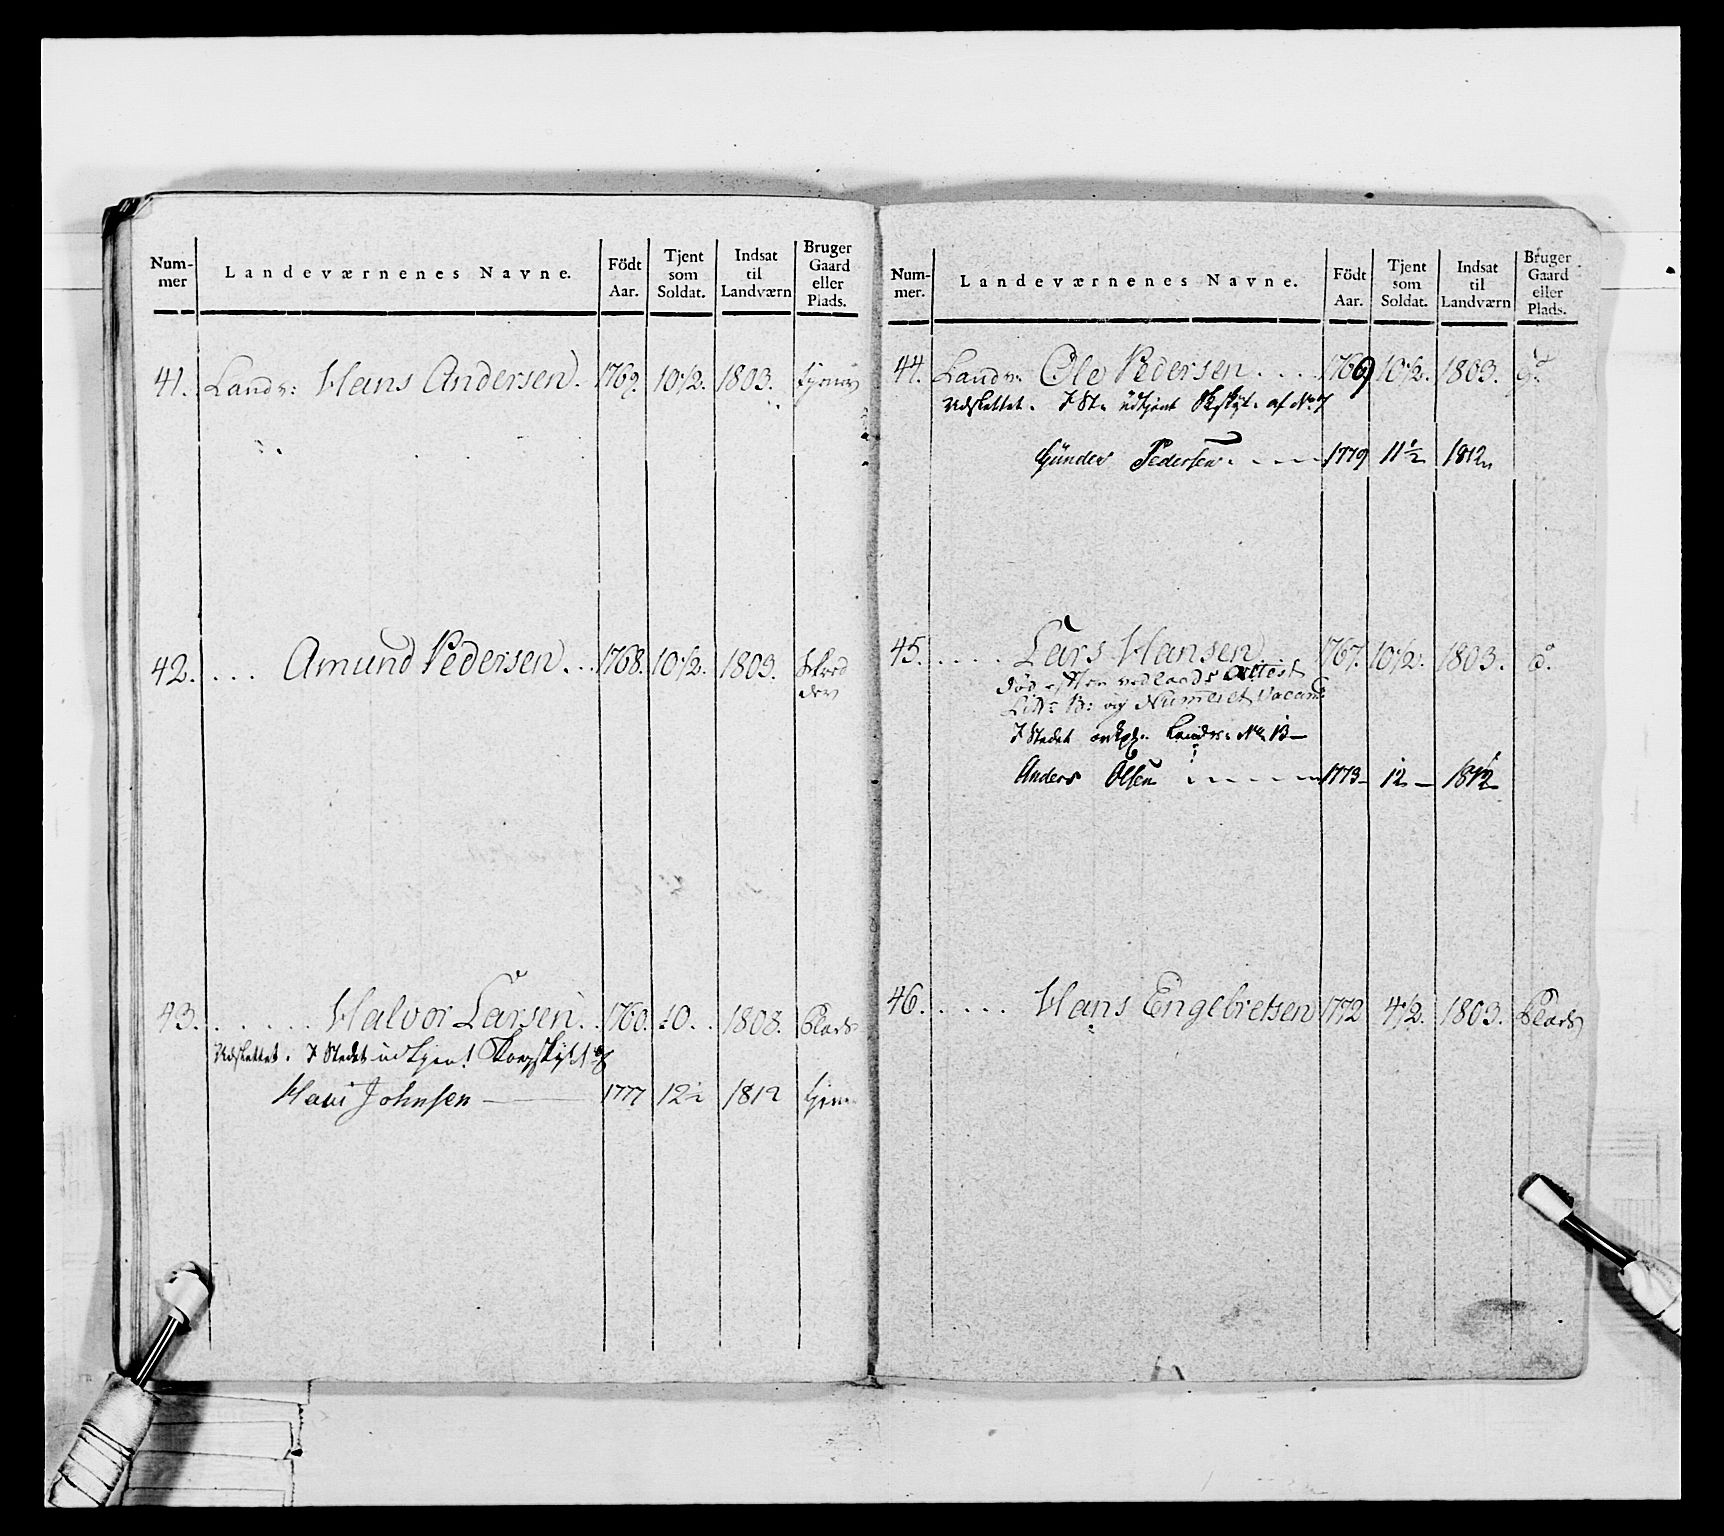 Num-
mer
Landeværnenes Navne.
Födt
Aar.
Tjent
som
Soldat.
Indsat
til
Landværn
Bruger
Gaard
eller
Plads.
41. Landv: Hans Andersen. 1769. 10 1/2. 1803.
42. ... Amund Pedersen ... 1768. 10 1/2. 1803.
43. ...... Halvor Larsen .. 1760. 10.. 1808. Plads
Udslettet. I Stedet udtjent
Hans Johnsen 1777 12 1812
Num-
mer.
Landeværnenes Navne.
Födt
Aar.
Tjent
som
Soldat.
Indsat
til
Landværn
Bruger
Gaard
eller
Plads.
44. Landv. Ole Pedersen .... 1769 10 1/2. 1803.
Udslettet. I St: udtjent af No 7
Gunder Pedersen. 1779 11 1/2 1812
45. ..... Lars Hansen 1767. 10 1/2. 1803. do.
død efter vedlagde Attest
Litr: B: og Numeret Vacant
I Stedet Landv: No 13
Anders Olsen 1773 12 1812
46. ..... Hans Engebretsen 1772 4 1/2. 1803. Plads